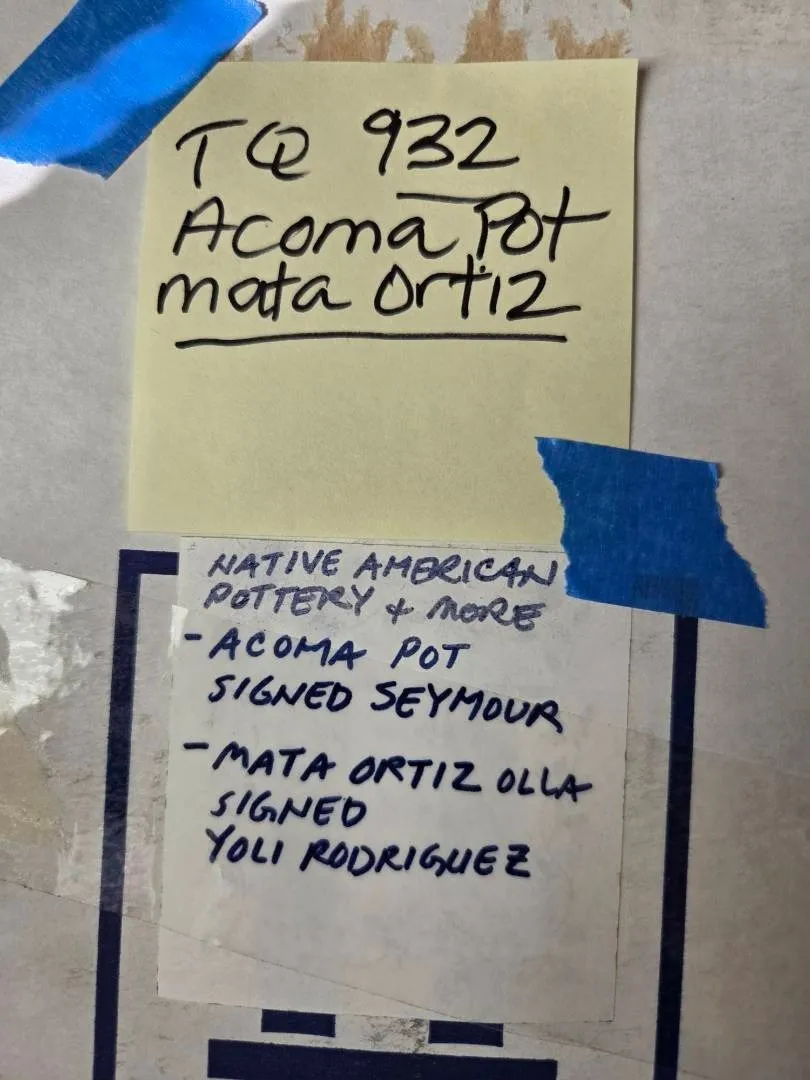 TQ 932
Acoma Pot
mata Ortiz
NATIVE AMERICAN
POTTERY & MORE
- ACOMA POT
SIGNED SEYMOUR
- MATA ORTIZ OLLA
SIGNED
YOLI RODRIGUEZ